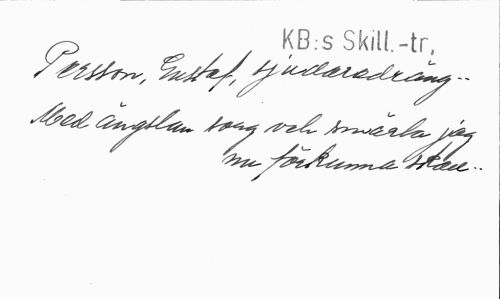 KB:s Skill.-tr.
Persson, Gustaf, sjudaradräng..
Med ängslan sorg och smärta jag
nu förkunna skall..